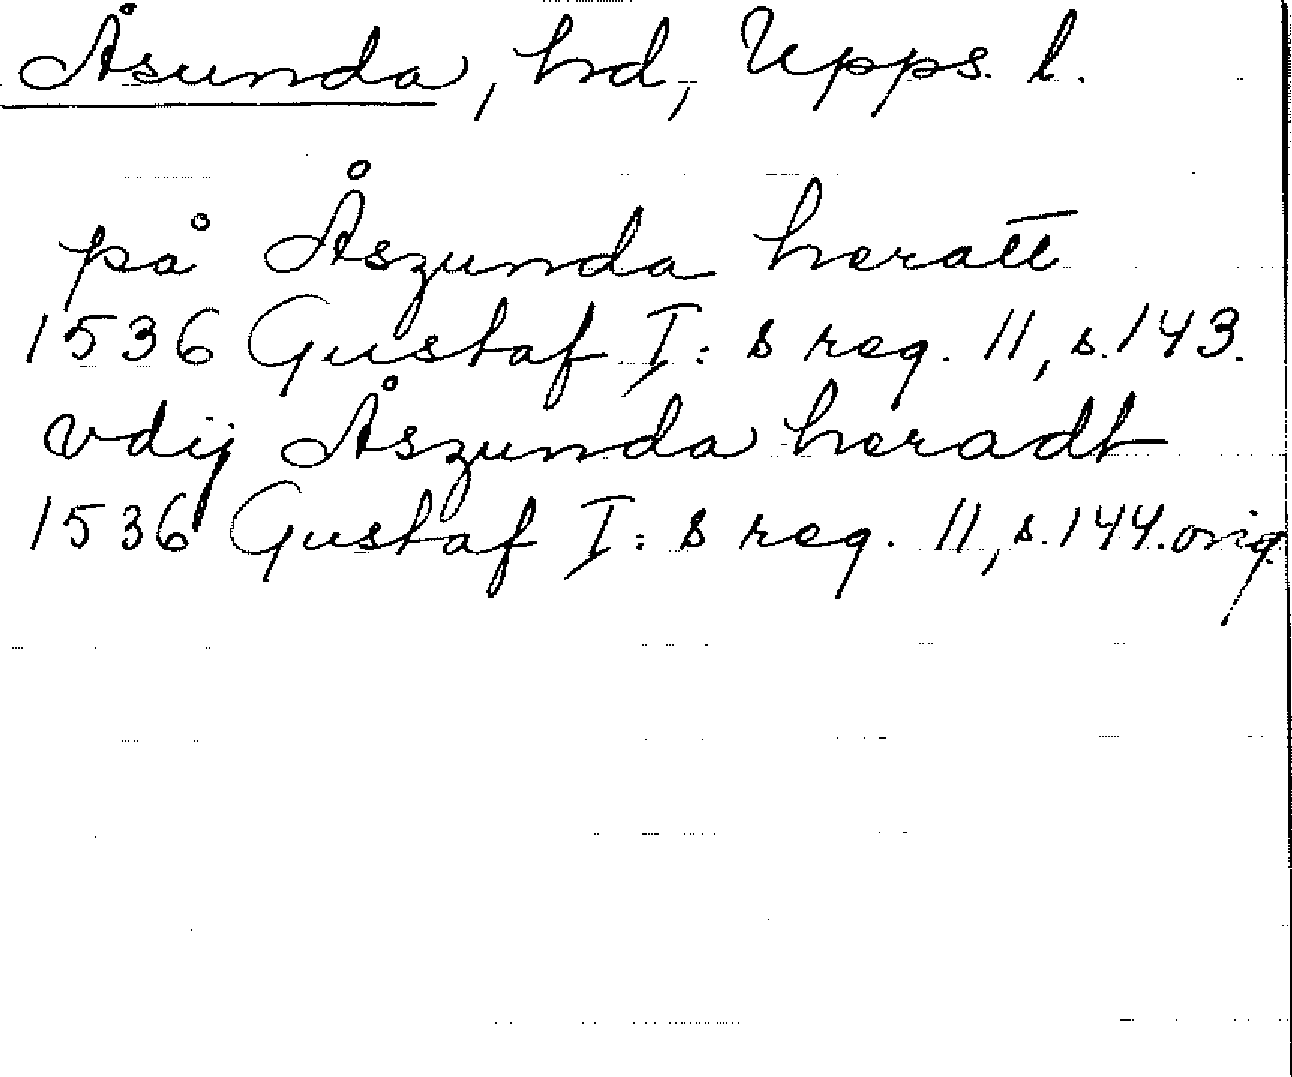 Åsunda, hd, Upps. l.
på Åszunda heratt
1536 Gustaf I:s reg. 11, s. 143.
vdij Åszunda heradt
1536 Gustaf I:s reg. 11, s. 144. orig.